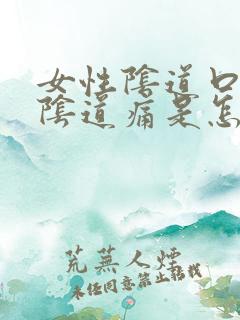 女性陰道口
陰道痛是怎
荒蕪人煙
未经同意禁止转载